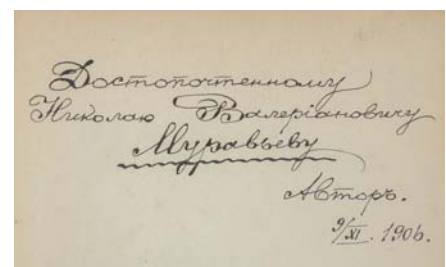 Достопочтенному
Николаю Валеріановичу
Муравьеву
Авторъ.
9/XI. 1906.